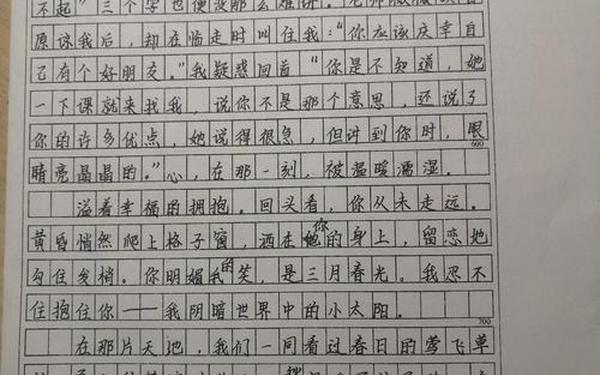 不起”三个字也便没那么难讲。老师微微颔首
原谅我后，却在临走时叫住我：“你应该庆幸自
己有个好朋友。”我疑惑回首“你是不知道，她
一下课就来找我，说你不是那个意思，还说了
你的许多优点，她说得很急，但讲到你时，眼
600
睛亮晶晶的。”心，在那一刻，被温暖濡湿。
溢着幸福的拥抱。回头看，你从未走远。
黄昏悄然爬上格子窗，洒在你的身上，留恋地
勾住发梢。你明媚的笑，是三月春光。我忍不
住抱住你——我阴暗世界中的小太阳。
700
在那片天地，我们一同看过春日的莺飞草